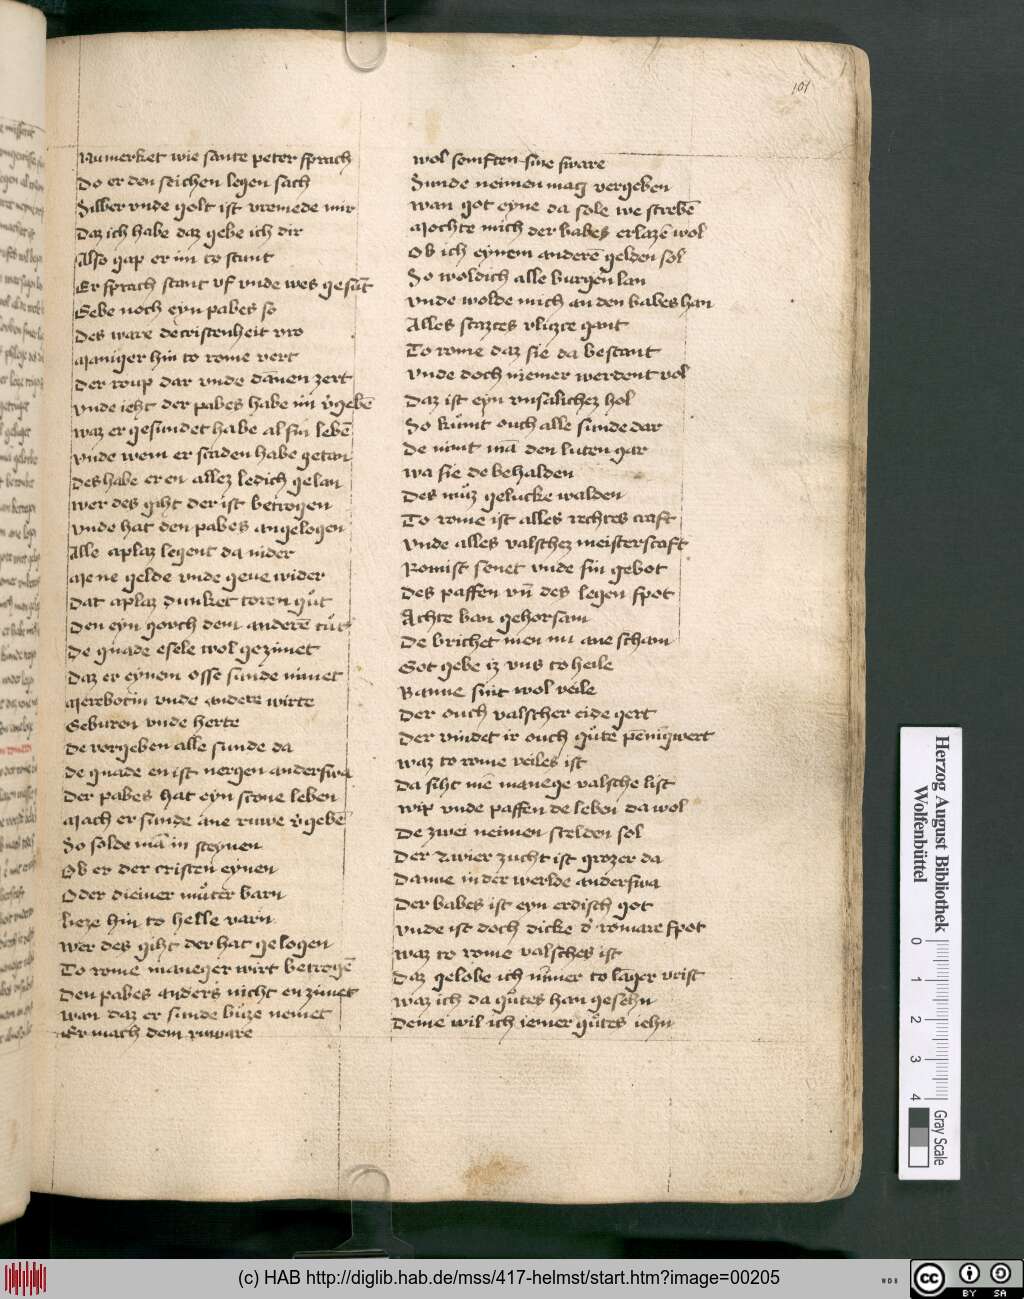 101
Nu merket wie sante peter sprach
Do er den seichen legen sach
Silber vnde golt ist vremede mir
Daz ich habe daz gebe ich dir
Also gap er im to stunt
Er sprach stant vf vnde wes gesūt
Gebe noch eyn pabes so
Des ware de cristenheit vro
Maniger hin to rome vert
Der roup dar vnde dānen zert
Vnde ieht der pabes habe im v̄gebē
Waz er gesundet habe al sin lebē
Vnde wem er scaden habe getan
Des habe er en allez ledich gelan
Wer des giht der ist betrogen
Vnde hat den pabes angelogen
Alle aplaz legent da nider
Mene gelde vnde geue wider
Dat aplaz dunket toren gůt
Den eyn gouch dem anderē tůt
De gnade esele wol gezimet
Daz er eynem osse sunde nimet
Merebotin vnde andere wirte
Geburen vnde herte
De vorgeben alle sunde da
De gnade en ist nergen anderswa
Der pabes hat eyn scone leben
Mach er sunde ane ruwe v̄gebē
So solde mā in steynen
Ob er der cristen eynen
Oder dieiner můter barn
Lieze hin to helle varn
Wer des giht der hat gelogen
To rome maneger wirt betrogē
Den pabes anders nicht en zimet
Wan daz er sunde bůze nemet
Er mach dem ruware
Wol semften sine sware
Sunde neimen mag vergeben
Wan got eyne da sole we strebē
Mochte mich der babes erlazē wol
Ob ich eynem anderē gelden sol
So woldich alle burgen lan
Vnde wolde mich an den babes han
Alles scaztes vliezte gant
To rome daz sie da bestant
Vnde doch niemer werdent vol
Daz ist eyn vnsalichez hol
So kůmt ouch alle sunde dar
De nimt mā den luten gar
Wa sie de behalden
Des můz gelucke walden
To rome ist alles rechtes craft
Vnde alles valschez meisterscaft
Romist senet vnde sin gebot
Des paffen vn̄ des legen spot
Achte ban gehorsam
De brichet men nu ane scham
Got gebe iz vns to heile
Banne sint wol veile
Der ouch valscher eide gert
Der vindet ir ouch gůte pēnigwert
Waz to rome veiles ist
Da siht mē manege valsche list
Wip vnde paffen de leben da wol
De zwei neimen scelden sol
Der zwier zucht ist grozer da
Danne in der werlde anderswa
Der babes ist eyn erdisch got
Vnde ist doch dicke d' romare spot
Waz to rome valsches ist
Daz gelobe ich nimer to lāger vrist
Waz ich da gůtes han gesehn
Deme wil ich iemer gůtes iehn
Herzog August Bibliothek
Wolfenbüttel
0
1
2
3
4
Gray Scale
(c) HAB http://diglib.hab.de/mss/417-helmst/start.htm?image=00205
WDB
cc
BY SA